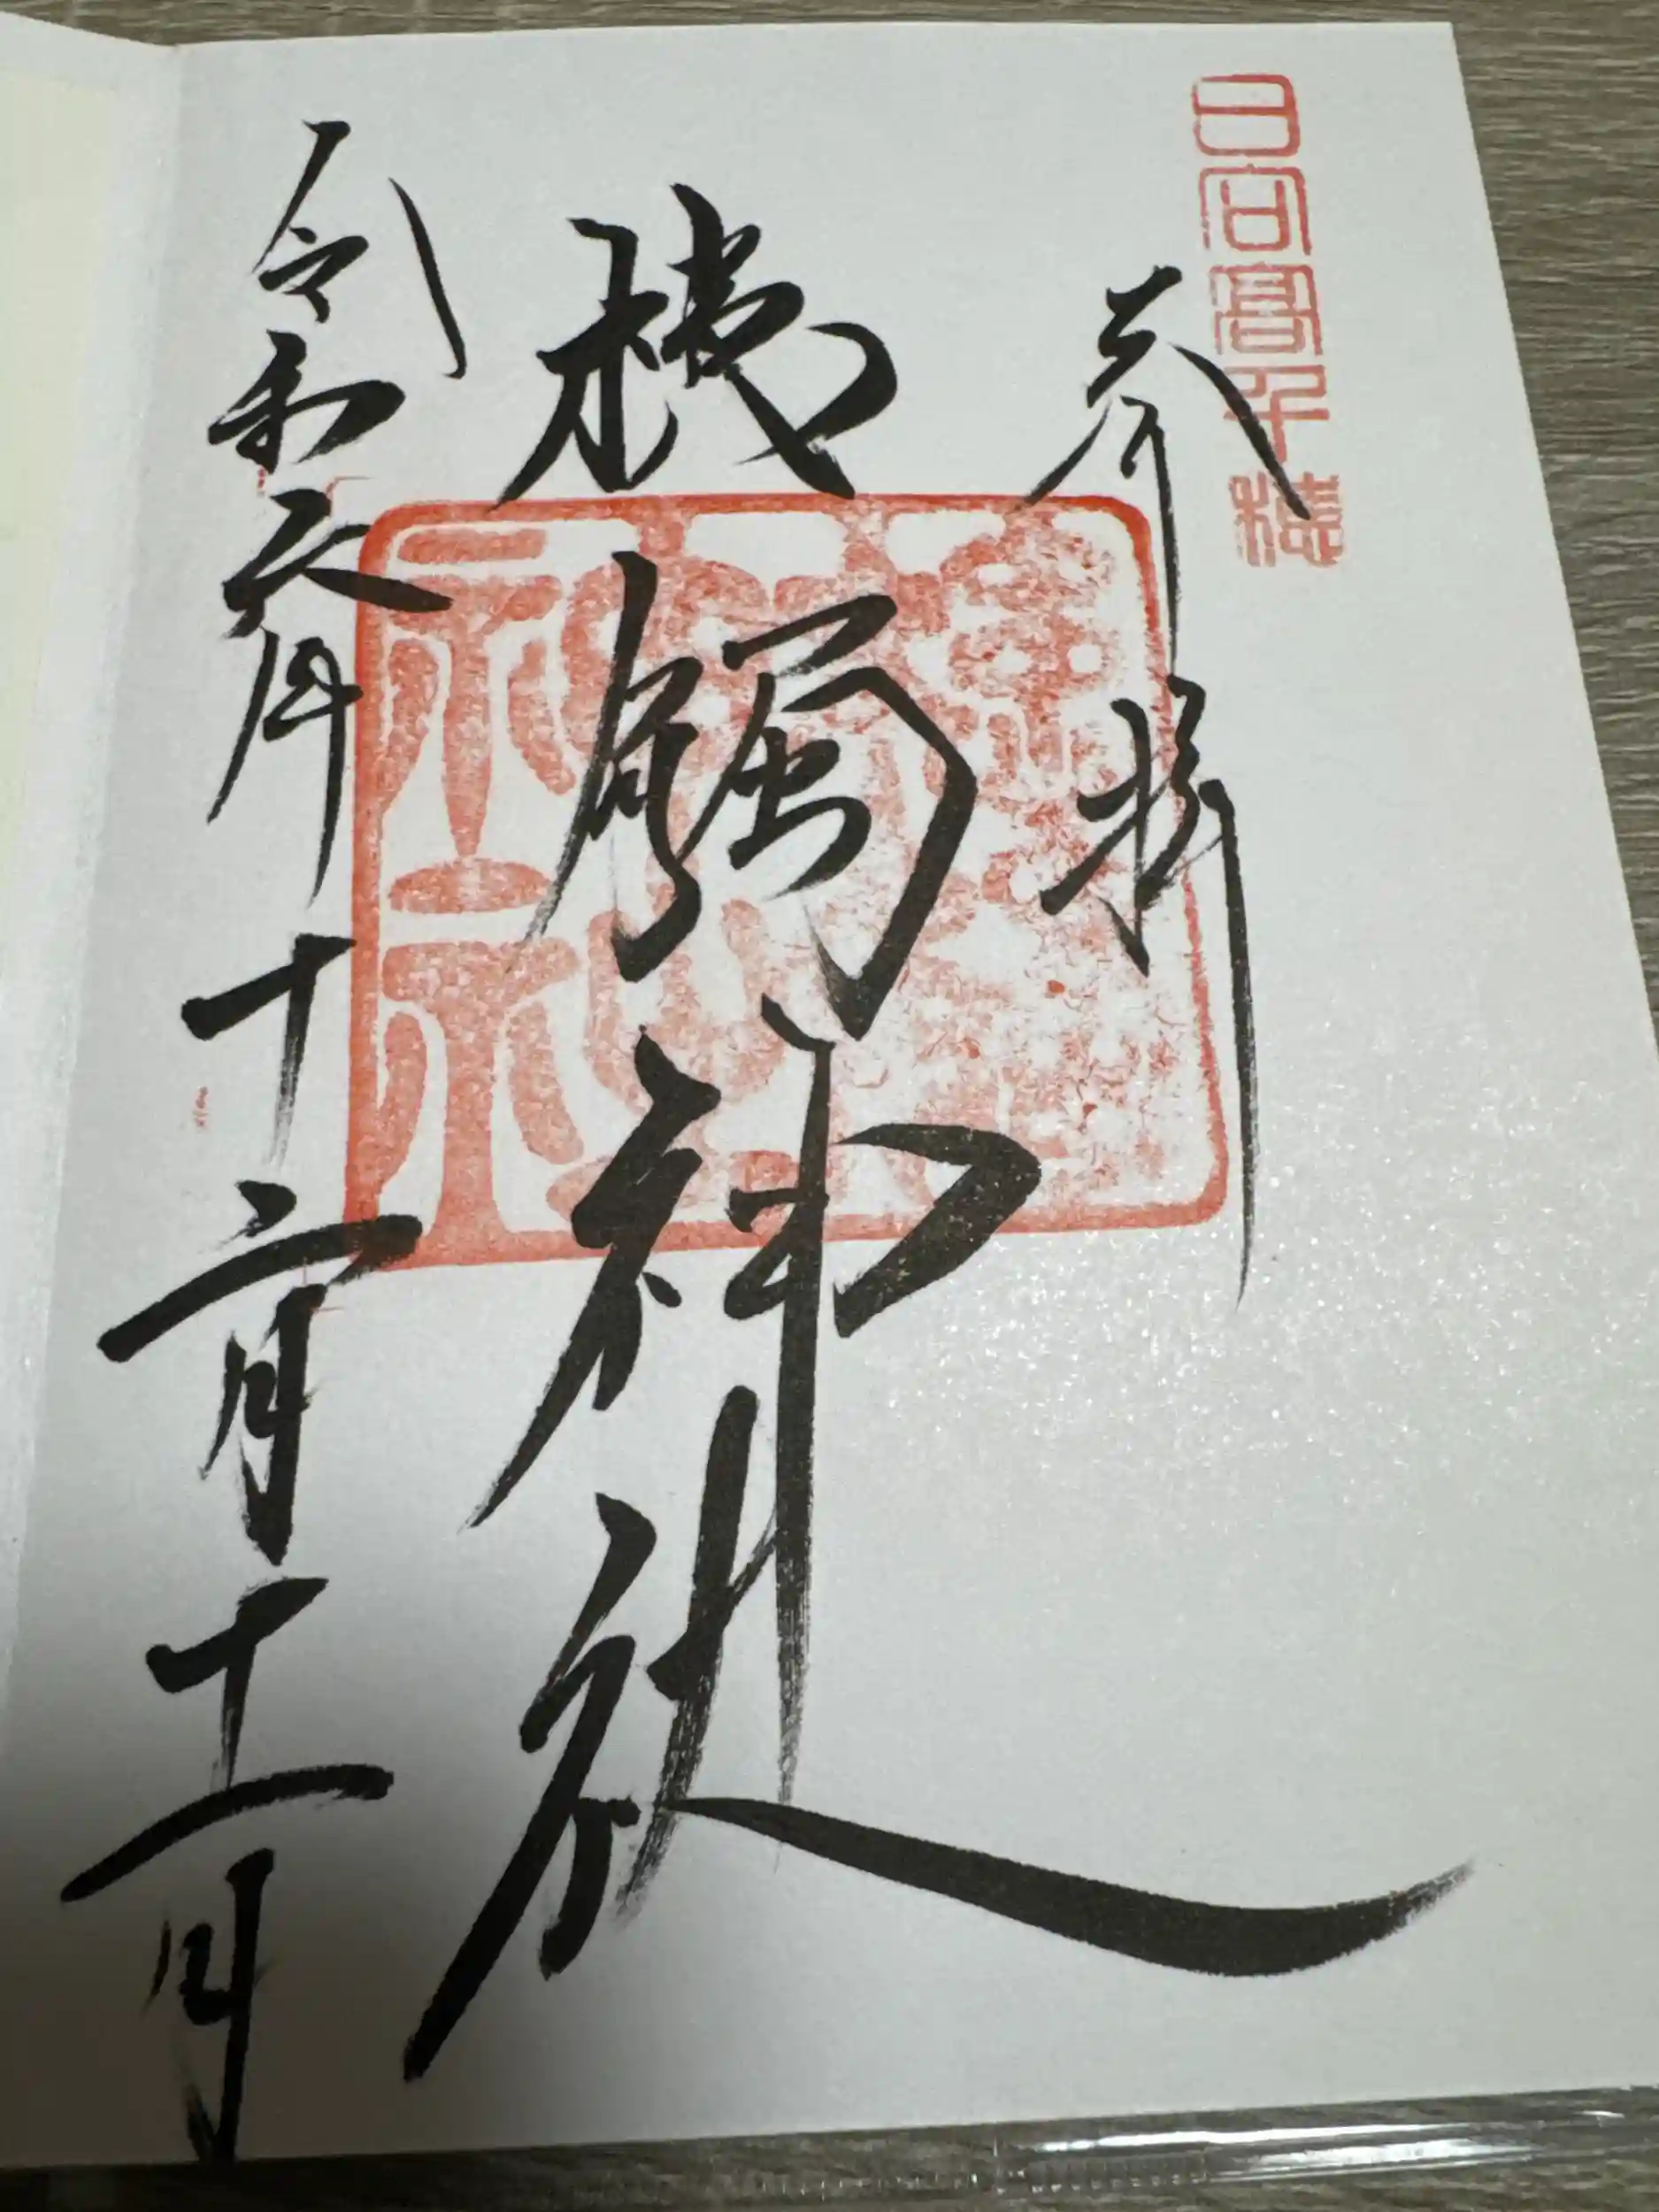 日向髙千穂
奉拝
槵觸神社
令和六年十二月十一日